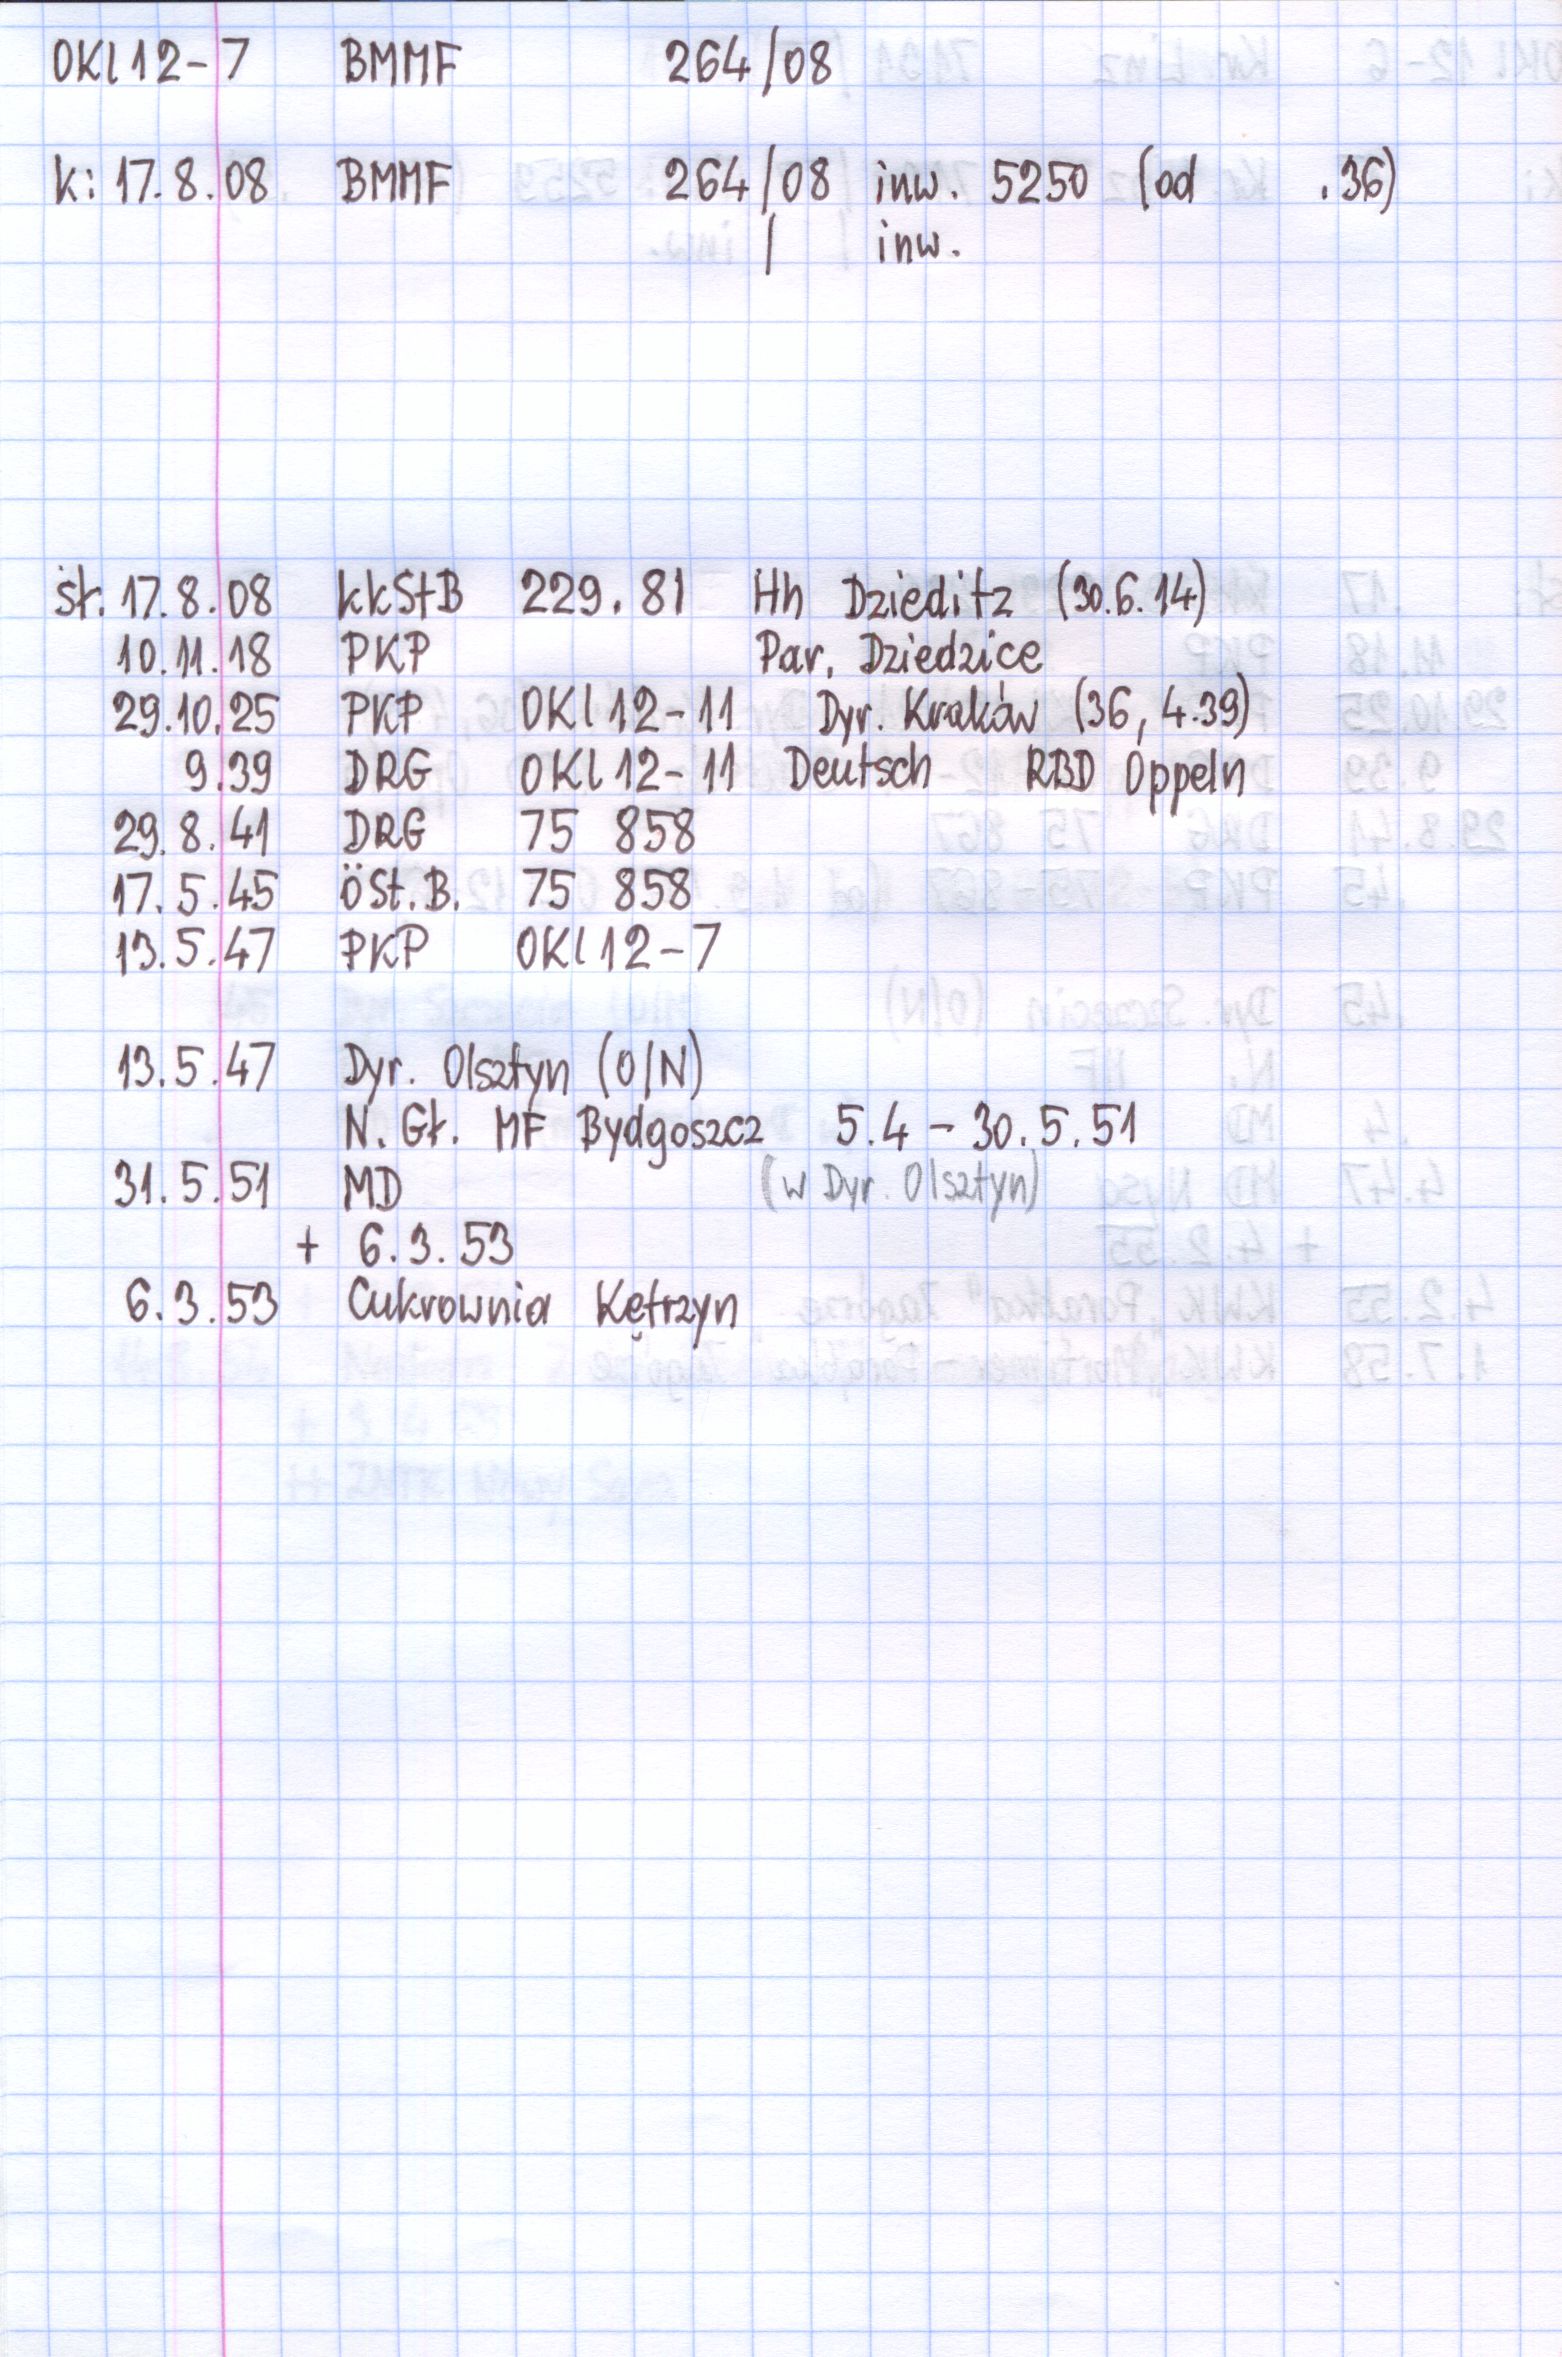 OKl 12-7 BMMF 264/08
k: 17.8.08 BMMF 264/08 inw. 5250 (od .36)
/ inw.
st. 17.8.08 kkStB 229.81 Hh Dzieditz (30.6.14)
10.11.18 PKP Par. Dziedzice
29.10.25 PKP OKl 12-11 Dyr. Kraków (36, 4.39)
9.39 DRG OKl 12-11 Deutsch RBD Oppeln
29.8.41 DRG 75 858
17.5.45 ÖSt.B. 75 858
13.5.47 PKP OKl 12-7
13.5.47 Dyr. Olsztyn (O/N)
N. Gł. MF Bydgoszcz 5.4 - 30.5.51
31.5.51 MD (w Dyr. Olsztyn)
+ 6.3.53
6.3.53 Cukrownia Kętrzyn